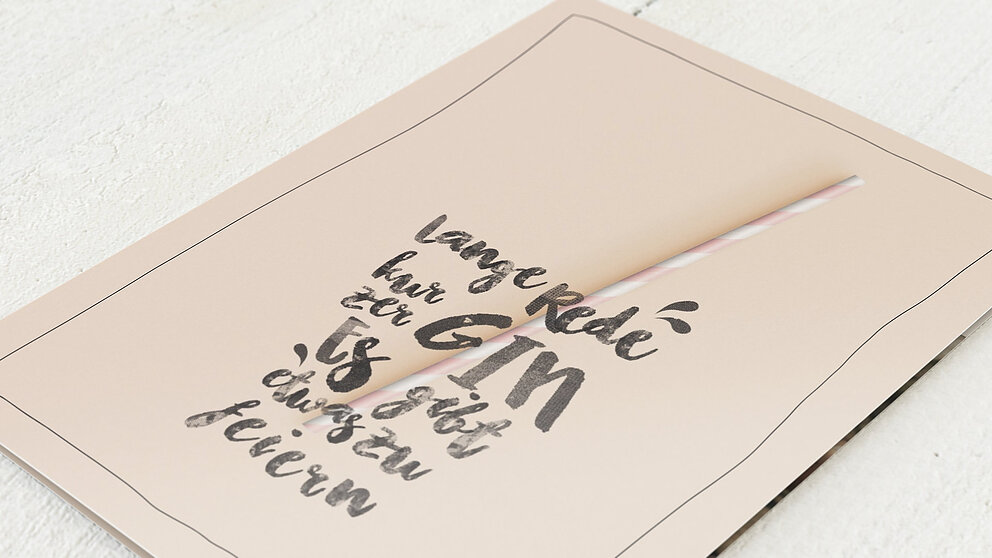 Lange Rede
kur
zer GIN
Es gibt
etwas zu
feiern